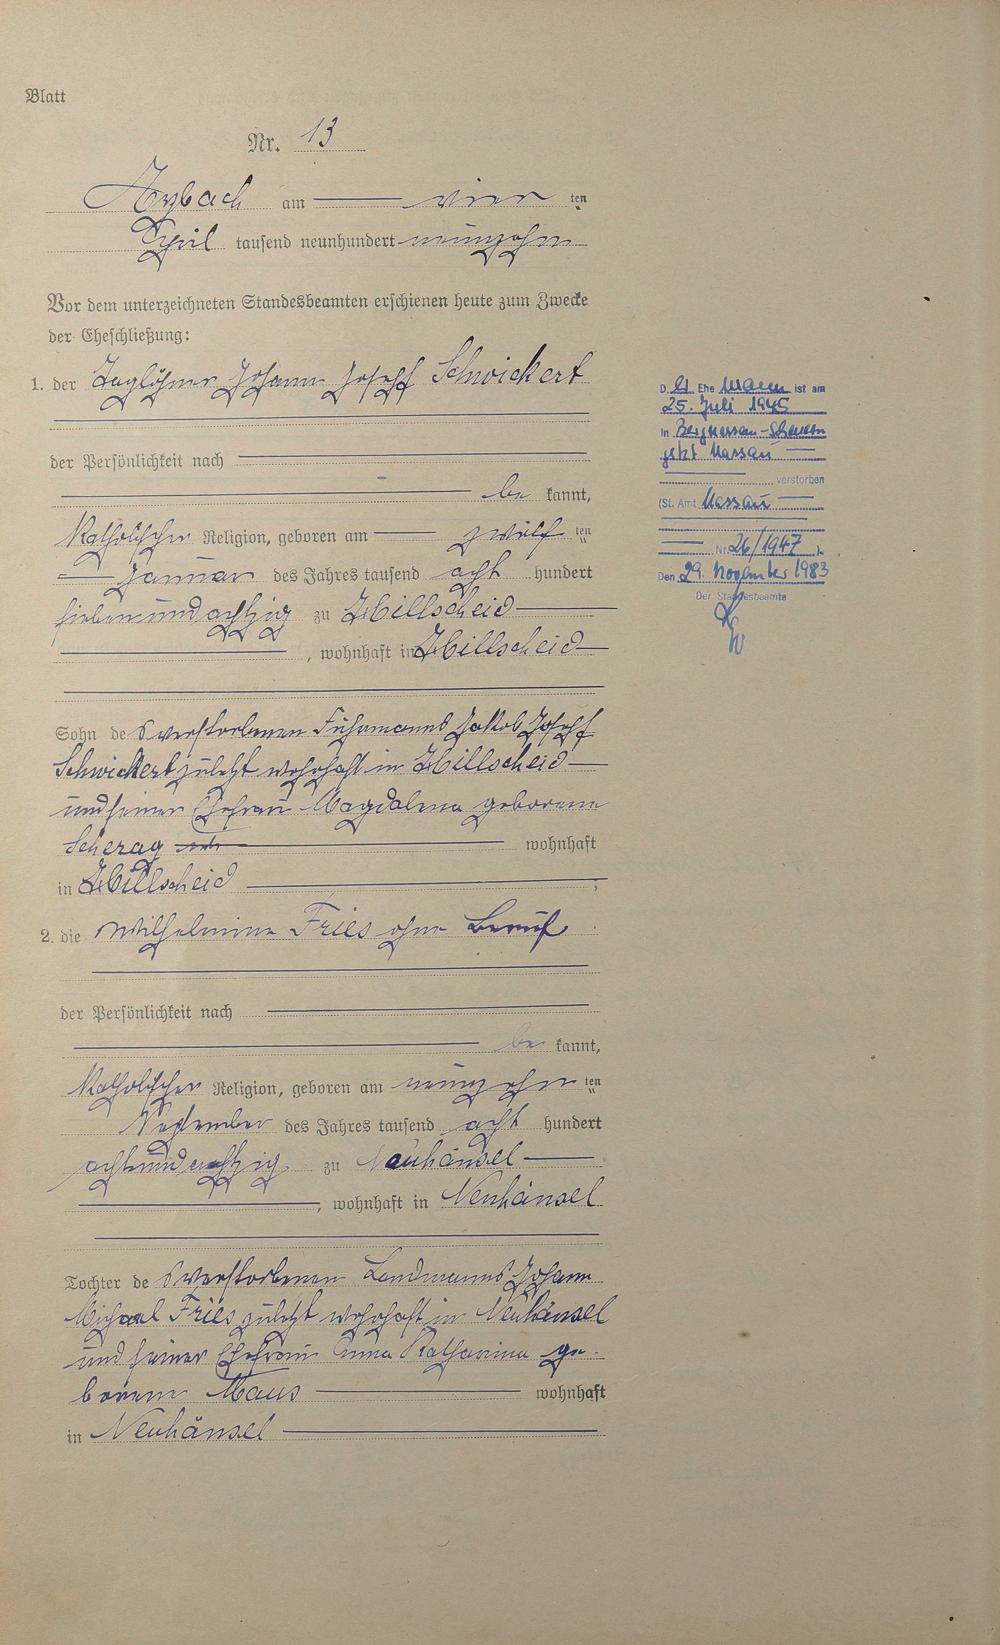 Blatt
Nr. 13
Arzbach am vier ten
April tausend neunhundert neunzehn
Vor dem unterzeichneten Standesbeamten erschienen heute zum Zwecke
der Eheschließung:
1. der Taglöhner Johann Josef Schwickert
der Persönlichkeit nach
be kannt,
katholischer Religion, geboren am zwölf ten
Januar des Jahres tausend acht hundert
siebenundachtzig zu Hillscheid
, wohnhaft in Hillscheid
Sohn des verstorbenen Fuhrmanns Jakob Josef
Schwickert zuletzt wohnhaft in Hillscheid
und seiner Ehefrau Magdalena geborene
Scherag wohnhaft
in Hillscheid ,
2. die Wilhelmine Fries ohne Beruf
der Persönlichkeit nach
be kannt,
katholischer Religion, geboren am neunzehn ten
September des Jahres tausend acht hundert
achtundachtzig zu Neuhäusel
, wohnhaft in Neuhäusel
Tochter des verstorbenen Landmanns Johann
Michael Fries zuletzt wohnhaft in Neuhäusel
und seiner Ehefrau Anna Katharina ge-
borene Maus wohnhaft
in Neuhäusel
D. Ehe Mann ist am
25. Juli 1945
in Bergnassau-Scheuern
jetzt Nassau
verstorben
(St. Amt Nassau
Nr. 26/1947 ).
Den 29. November 1983
Der Standesbeamte